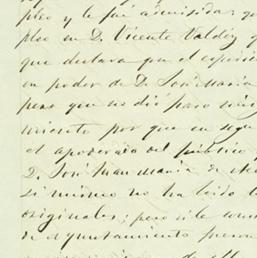 pleo y le fué admisida; q
pleo en D. Vicente Valdez y
que declara que el espedi
en poder de D. José Maria
pero que no dio paso ning
miento por que en segu
el apoderado del público
D. José Juan Maria de
si mismo no ha leido l
originales; pero si le cons
de Ayuntamiento